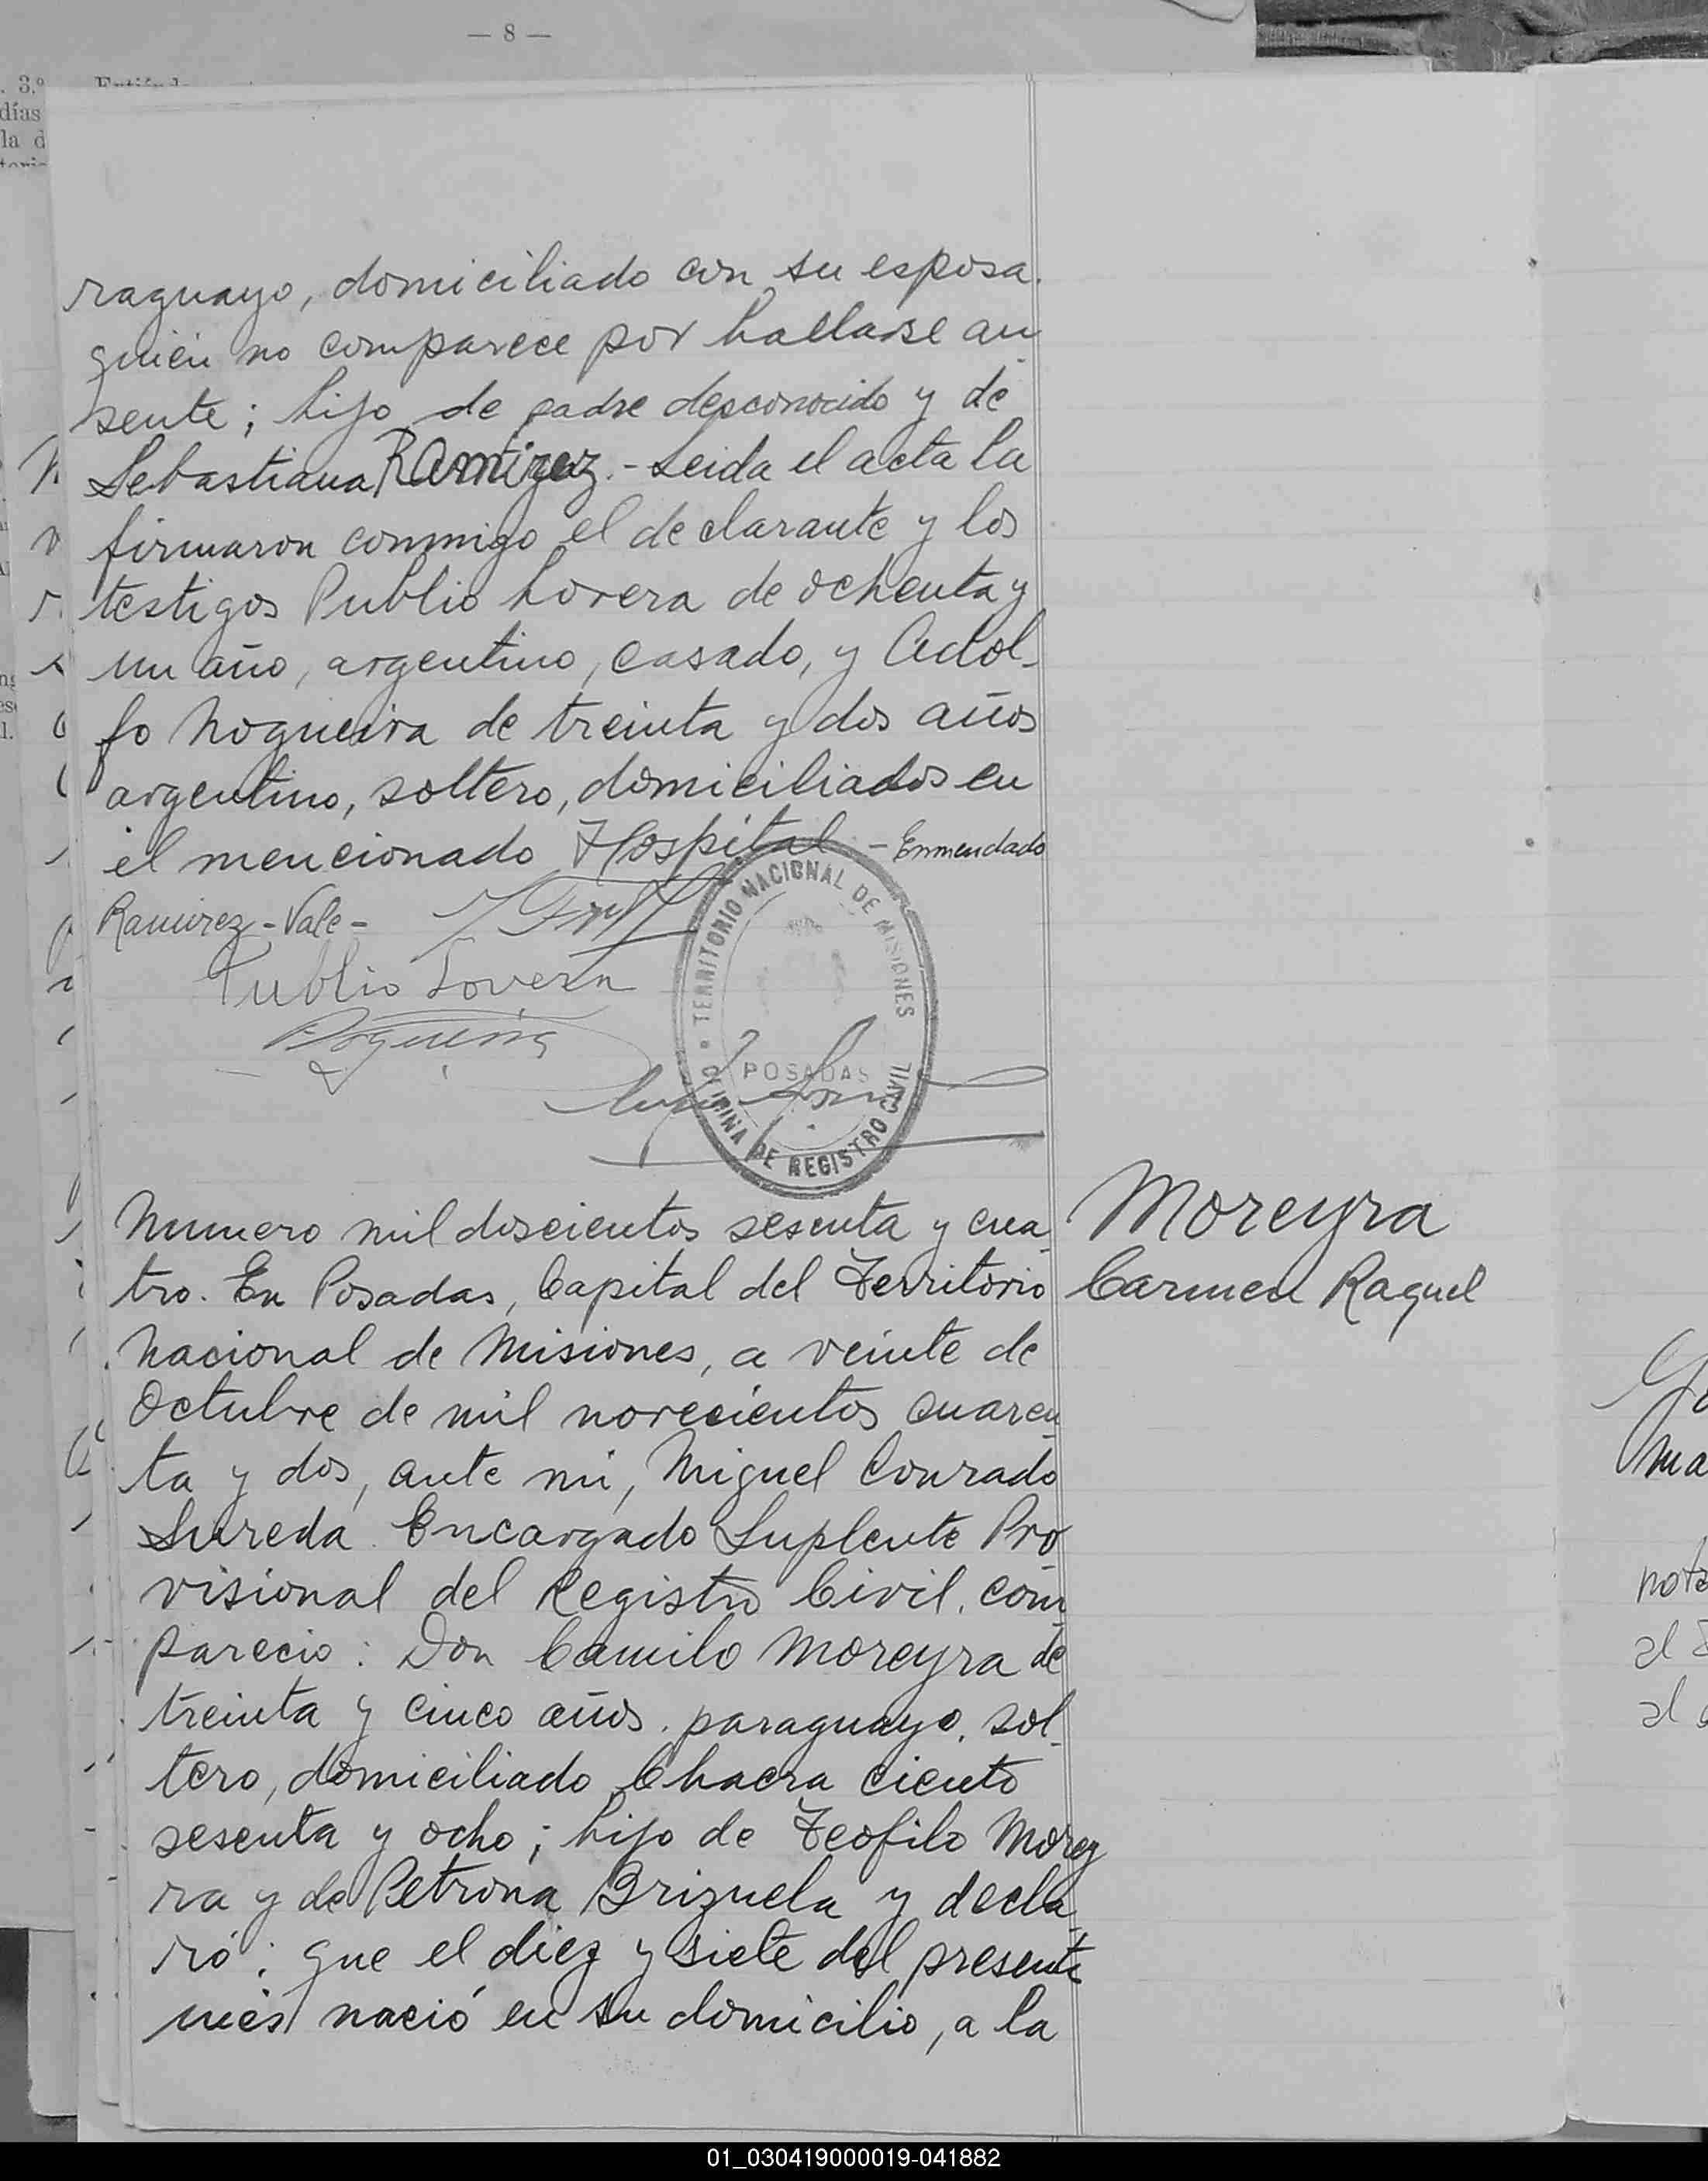 — 8 —
3.º
días
la d
raguayo, domiciliado con su esposa.
quien no comparece por hallarse au
sente; hijo de padre desconocido y de
Sebastiana Ramirez. - Leida el acta la
firmaron conmigo el declarante y los
testigos Publio Lovera de ochenta y
un año, argentino, casado, y Adol-
fo Nogueira de treinta y dos años
argentino, soltero, domiciliados en
el mencionado Hospital - Enmendado
Ramirez - Vale -
Publio Lovera
Nogueira
TERRITORIO NACIONAL DE MISIONES
POSADAS
OFICINA DE REGISTRO CIVIL
Numero mil doscientos sesenta y cua
tro. En Posadas, Capital del Territorio
Nacional de Misiones, a veinte de
Octubre de mil novecientos cuaren
ta y dos, ante mi, Miguel Conrado
Sureda Encargado Suplente Pro
visional del Registro Civil, com
parecio: Don Camilo Moreyra de
treinta y cinco años, paraguayo, sol-
tero, domiciliado Chacra ciento
sesenta y ocho; hijo de Teofilo Morey
ra y de Petrona Brizuela y decla
ró: que el diez y siete del presente
mes nació en su domicilio, a la
Moreyra
Carmen Raquel
01_030419000019-041882